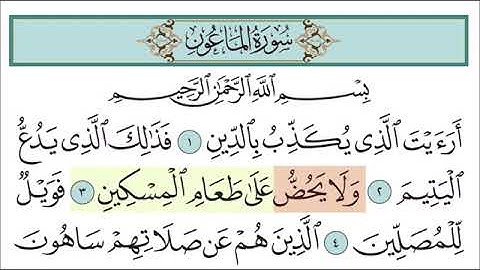 سُورَةُ الْمَاعُونِ
بِسْمِ اللَّهِ الرَّحْمَٰنِ الرَّحِيمِ
أَرَءَيْتَ الَّذِي يُكَذِّبُ بِالدِّينِ ١ فَذَٰلِكَ الَّذِي يَدُعُّ
الْيَتِيمَ ٢ وَلَا يَحُضُّ عَلَىٰ طَعَامِ الْمِسْكِينِ ٣ فَوَيْلٌ
لِلْمُصَلِّينَ ٤ الَّذِينَ هُمْ عَنْ صَلَاتِهِمْ سَاهُونَ